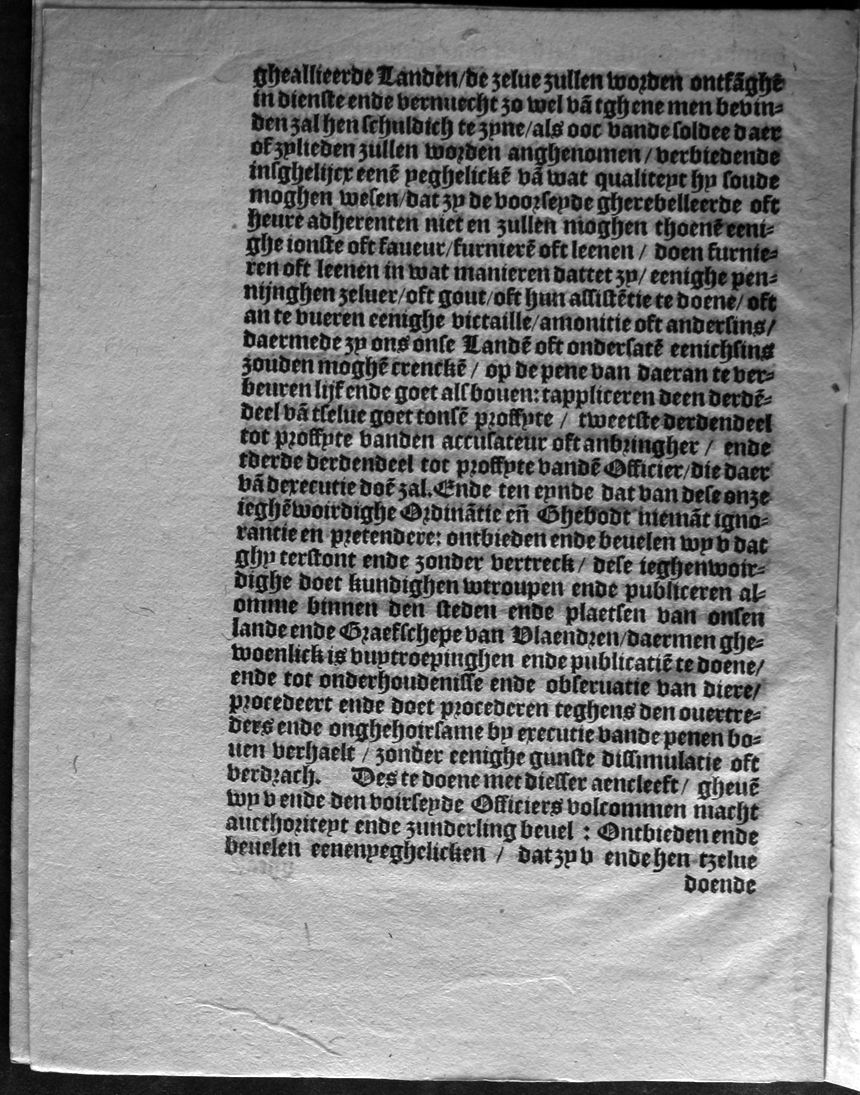 gheallieerde Landen/de zelue zullen worden ontfāghē
in dienste ende vernuecht zo wel vā tghene men bevin⸗
den zal hen schuldich te zyne/als ooc vande soldee daer
of zylieden zullen worden anghenomen/verbiedende
insghelijcx eenē yeghelickē vā wat qualiteyt hy soude
moghen wesen/dat zy de voorseyde gherebelleerde oft
heure adherenten niet en zullen moghen thoenē eeni⸗
ghe ionste oft faueur/furnierē oft leenen / doen furnie⸗
ren oft leenen in wat manieren dattet zy/ eenighe pen⸗
nijnghen zeluer/oft gout/oft hun assistētie te doene/ oft
an te vueren eenighe victaille/amonitie oft andersins/
daermede zy ons onse Landē oft ondersatē eenichsins
zouden moghē crenckē / op de pene van daeran te ver⸗
beuren lijf ende goet als bouen: tappliceren deen derdē⸗
deel vā tselue goet tonsē proffyte / tweetste derdendeel
tot proffyte vanden accusateur oft anbringher / ende
tderde derdendeel tot proffyte vandē Officier/die daer
vā dexecutie doē zal. Ende ten eynde dat van dese onze
ieghēwoirdighe Ordināntie eñ Ghebodt niemāt igno⸗
rantie en pretendere: ontbieden ende beuelen wy v dat
ghy terstont ende zonder vertreck/ dese ieghenwoir⸗
dighe doet kundighen wtroupen ende publiceren al⸗
omme binnen den steden ende plaetsen van onsen
lande ende Graefschepe van Vlaendren/daermen ghe⸗
woenlick is vuytroepinghen ende publicatiē te doene/
ende tot onderhoudenisse ende obseruatie van diere/
procedeert ende doet procederen teghens den ouertre⸗
ders ende onghehoirsame by executie vande penen bo⸗
uen verhaelt / zonder eenighe gunste dissimulatie oft
verdrach. Des te doene met diesser aencleeft/ gheuē
wy v ende den voirseyde Officiers volcommen macht
aucthoriteyt ende zunderling beuel : Ontbieden ende
beuelen eenenyeghelicken / dat zy v ende hen tzelue
doende